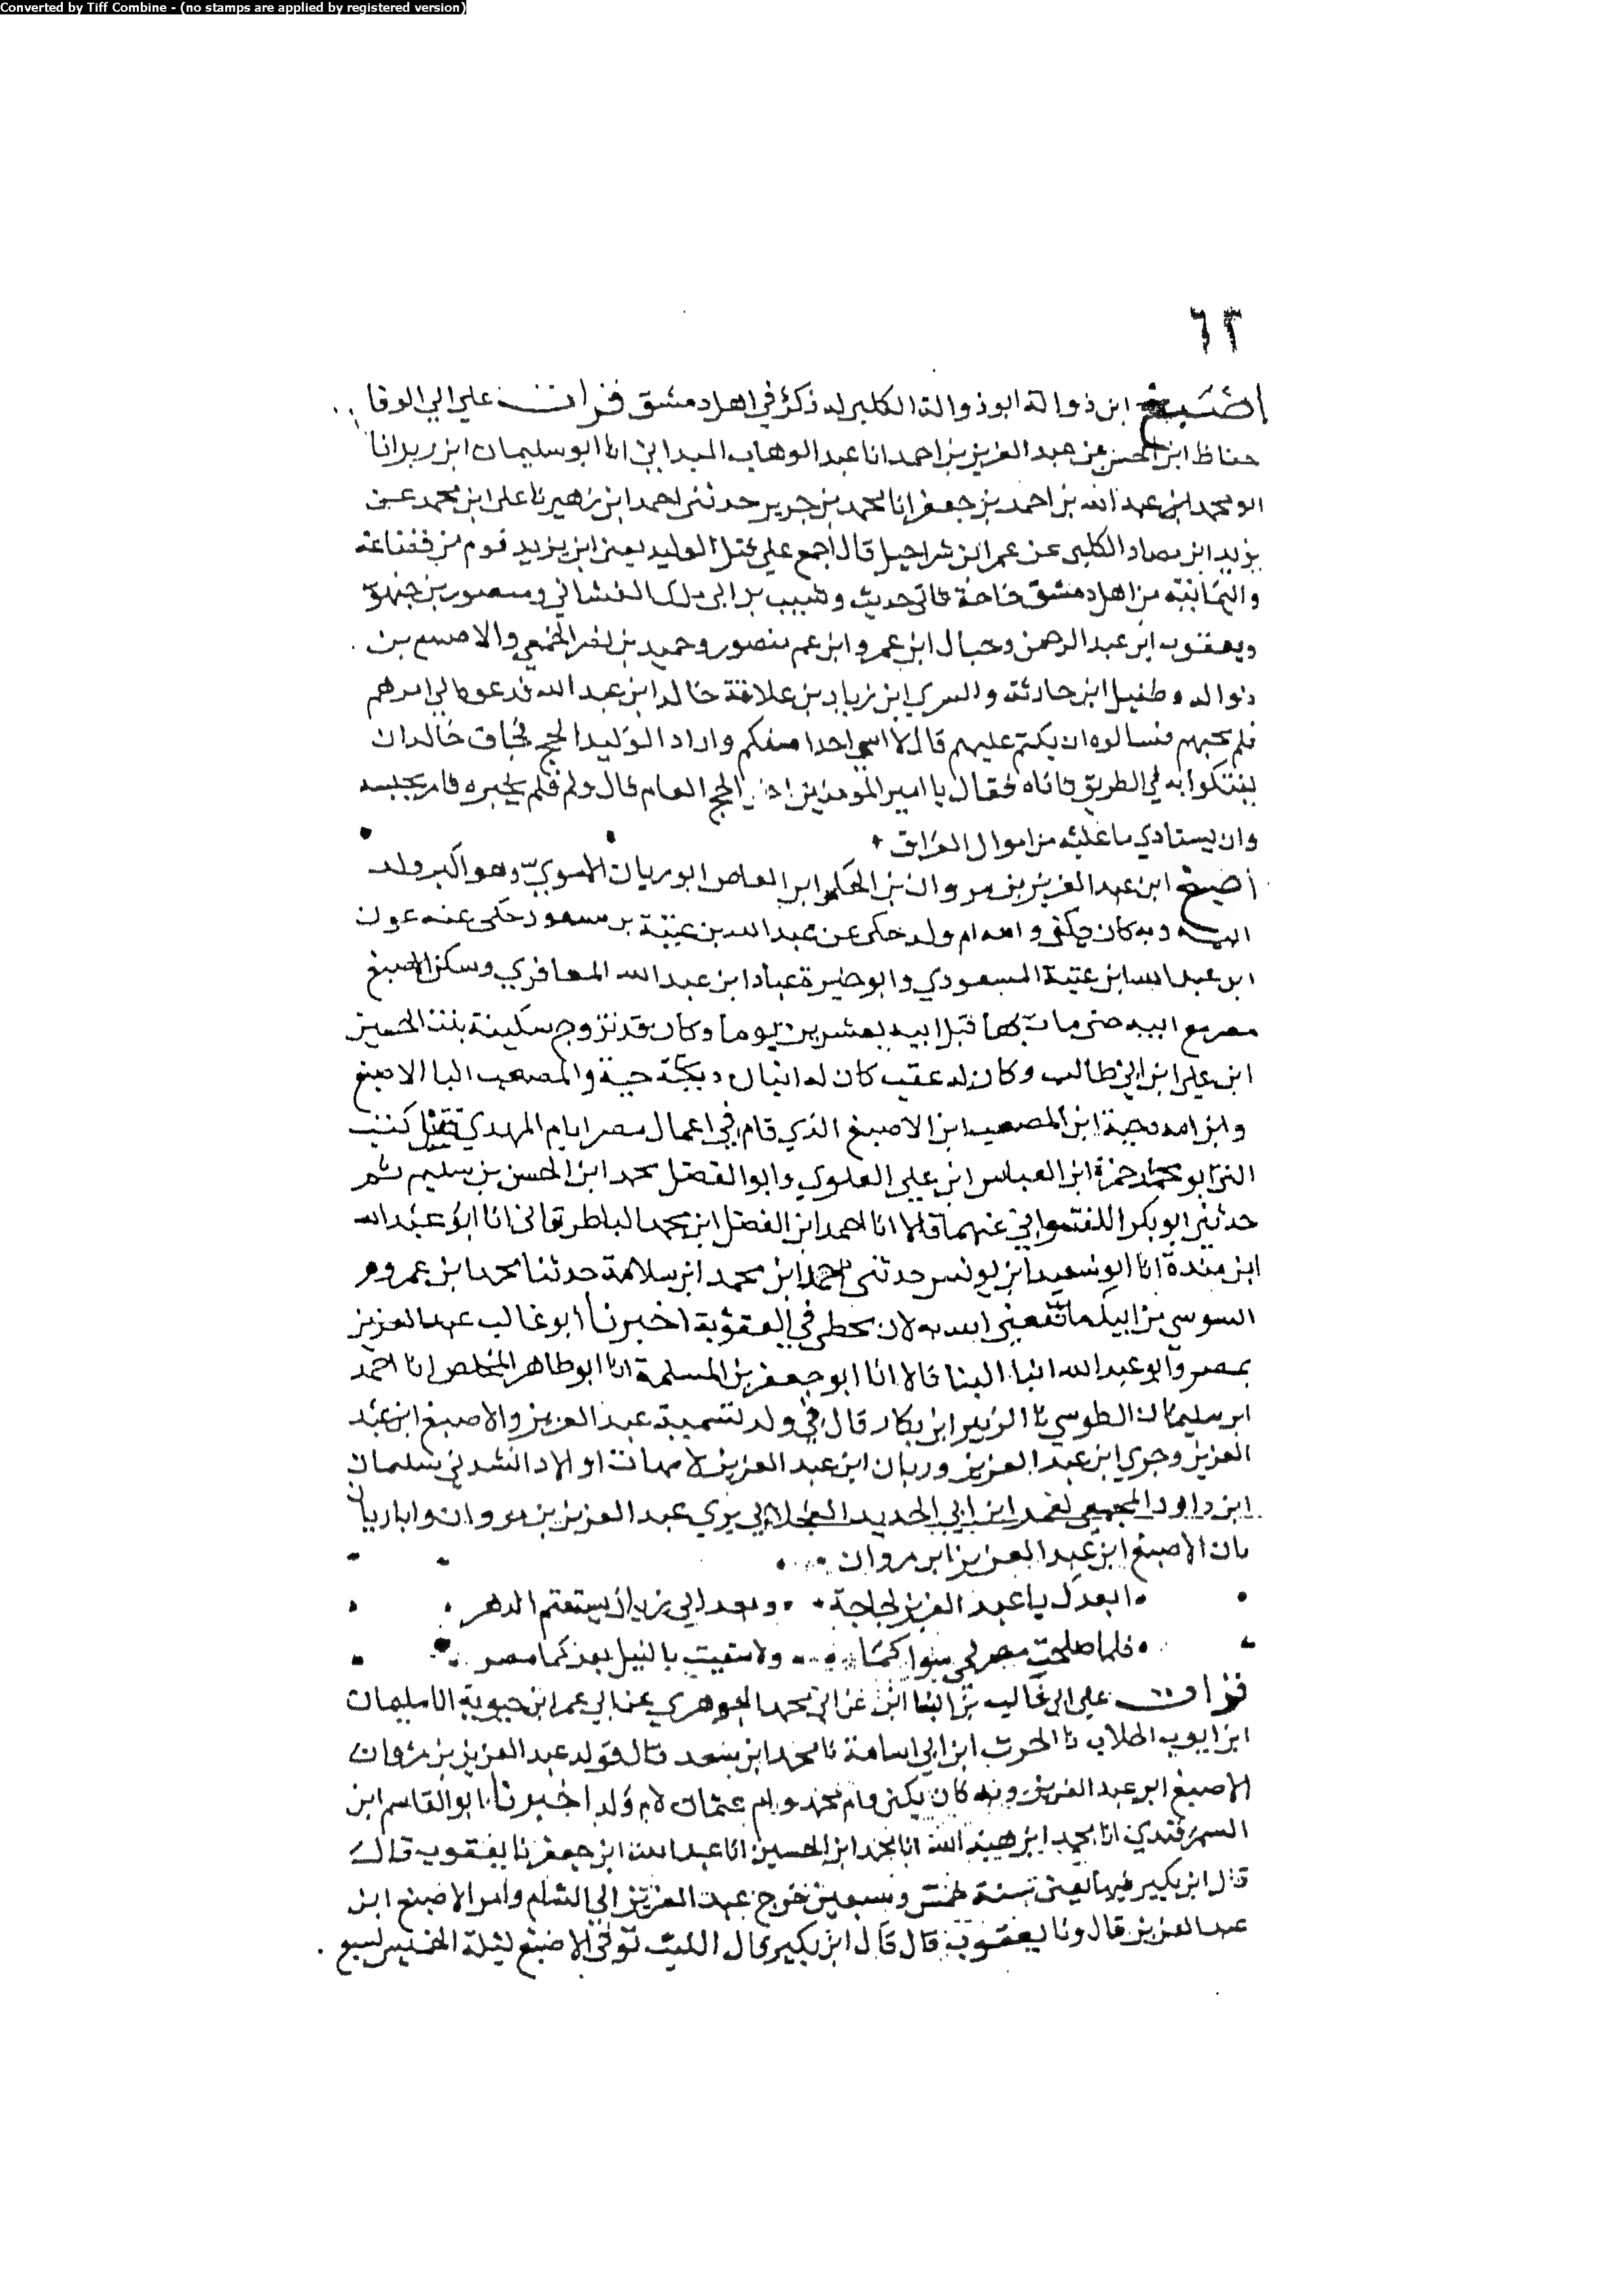 Converted by Tiff Combine - (no stamps are applied by registered version)
٦٢
اصبغ ابن ذوالة ابو ذوالة الكلبي له ذكر في اهل دمشق قرات علي ابي الوفا
حفاظ ابن الحسن عن عبد العزيز بن احمد انا عبد الوهاب الميداني انا ابو سليمان ابن زبر انا
ابو محمد ابن عبد الله بن احمد بن جعفر انا محمد بن جرير حدثني احمد ابن زهير نا علي ابن محمد عن
يزيد ابن مصاد الكلبي عن عمر ابن شراحيل قال اجمع علي قتل الوليد يعني ابن يزيد قوم من قضاعة
واليمانية من اهل دمشق خاصة فاتي حديث وشبيب بن ابي ملك الغساني ومنصور بن جمهور
ويعقوب ابن عبد الرحمن وحبال ابن عمرو ابن عم منصور وحميد بن نصر اللخمي والاصبغ بن
ذوالة وطفيل ابن حارثة والسري ابن زياد بن علاقة خالد ابن عبد الله فدعوه الي امرهم
فلم يجبهم فسالوه ان يكتم عليهم قال لا اسمي احدا منكم واراد الوليد الحج فخاف خالد ان
يفتكوا به في الطريق فاتاه فقال يا امير المومنين اخر الحج العام قال ولم فلم يخبره فامر بحبسه
وان يستادي ما عليه من اموال العراق
اصبغ ابن عبد العزيز بن مروان بن الحكم ابن العاص ابو ريان الاموي وهو اكبر ولد
ابيه وبه كان يكنى وامه ام ولد حكى عن عبد الله بن عتبة بن مسعود حكى عنه عون
ابن عبد الله ابن عتبة المسعودي وابو خيرة عباد ابن عبد الله المعافري وسكن الاصبغ
مصر مع ابيه حتى مات بها قبل ابيه بعشرين يوما وكان قد تزوج سكينة بنت الحسين
ابن علي ابن ابي طالب وكان له عقب كان له ابنان دحية والمصعب ابنا الاصبغ
وابن ابنه دحية ابن المصعب ابن الاصبغ الذي قام في اعمال مصر ايام المهدي فقتل كتب
الي ابو محمد حمزة ابن العباس ابن علي العلوي وابو الفضل محمد ابن الحسن بن سليم ثم
حدثني ابو بكر اللفتواني عنهما قالا انا احمد ابن الفضل ابن محمد الباطرقاني انا ابو عبد الله
ابن مندة انا ابو سعيد ابن يونس حدثني احمد ابن محمد ابن سلامة حدثنا محمد ابن عمرو
السوسي من ابيك ما نفعني الله به لان يخطي في العقوبة اخبرنا ابو غالب عبد العزيز
بمصر وابو عبد الله ابنا البنا قالا انا ابو جعفر بن المسلمة انا ابو طاهر المخلص انا احمد
ابن سليمان الطوسي نا الزبير ابن بكار قال في ولد تسمية عبد العزيز والاصبغ ابن عبد
العزيز وجري ابن عبد العزيز وربان ابن عبد العزيز لامهات اولاد انشدني سليمان
ابن داود المجمعي لعمر ابن ابي الحديد العجلاني يري عبد العزيز بن مروان وابا ريان
بان الاصبغ ابن عبد العزيز ابن مروان
ابعدك يا عبد العزيز لحاجة وبعد ابي زبان يستعتم الدهر
فلما صلحت مصر لحي سواكما ولا سقيت بالنيل بعدكما مصر
قرات علي ابي غالب بن البنا عن ابي محمد الجوهري عن ابي عمر ابن حيوية انا سليمان
ابن ايوب الجلاب نا الحرث ابن ابي اسامة نا محمد ابن سعد قال فولد عبد العزيز بن مروان
الاصبغ ابن عبد العزيز وبه كان يكنى وام محمد وام عثمان لام ولد اخبرنا ابو القاسم ابن
السمرقندي انا محمد ابن هبة الله انا محمد ابن الحسين انا عبد الله ابن جعفر نا يعقوب قال
قال ابن بكير فيها يعني سنة خمس وسبعين خرج عبد العزيز الي الشام وامر الاصبغ ابن
عبد العزيز قال ونا يعقوب قال قال ابن بكير قال الليث توفي الاصبغ ليلة الخميس لسبع